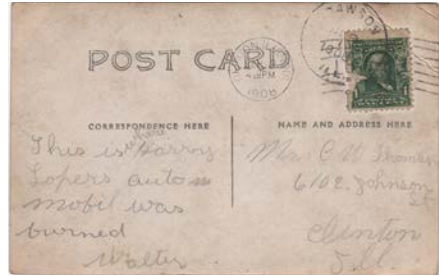 POST CARD
1908
CORRESPONDENCE HERE
NAME AND ADDRESS HERE
This is where Harry
Lopers auto
mobil was
burned
Walter
Mr. C W Thomas
610 E. Johnson
St
Clinton
Ill.